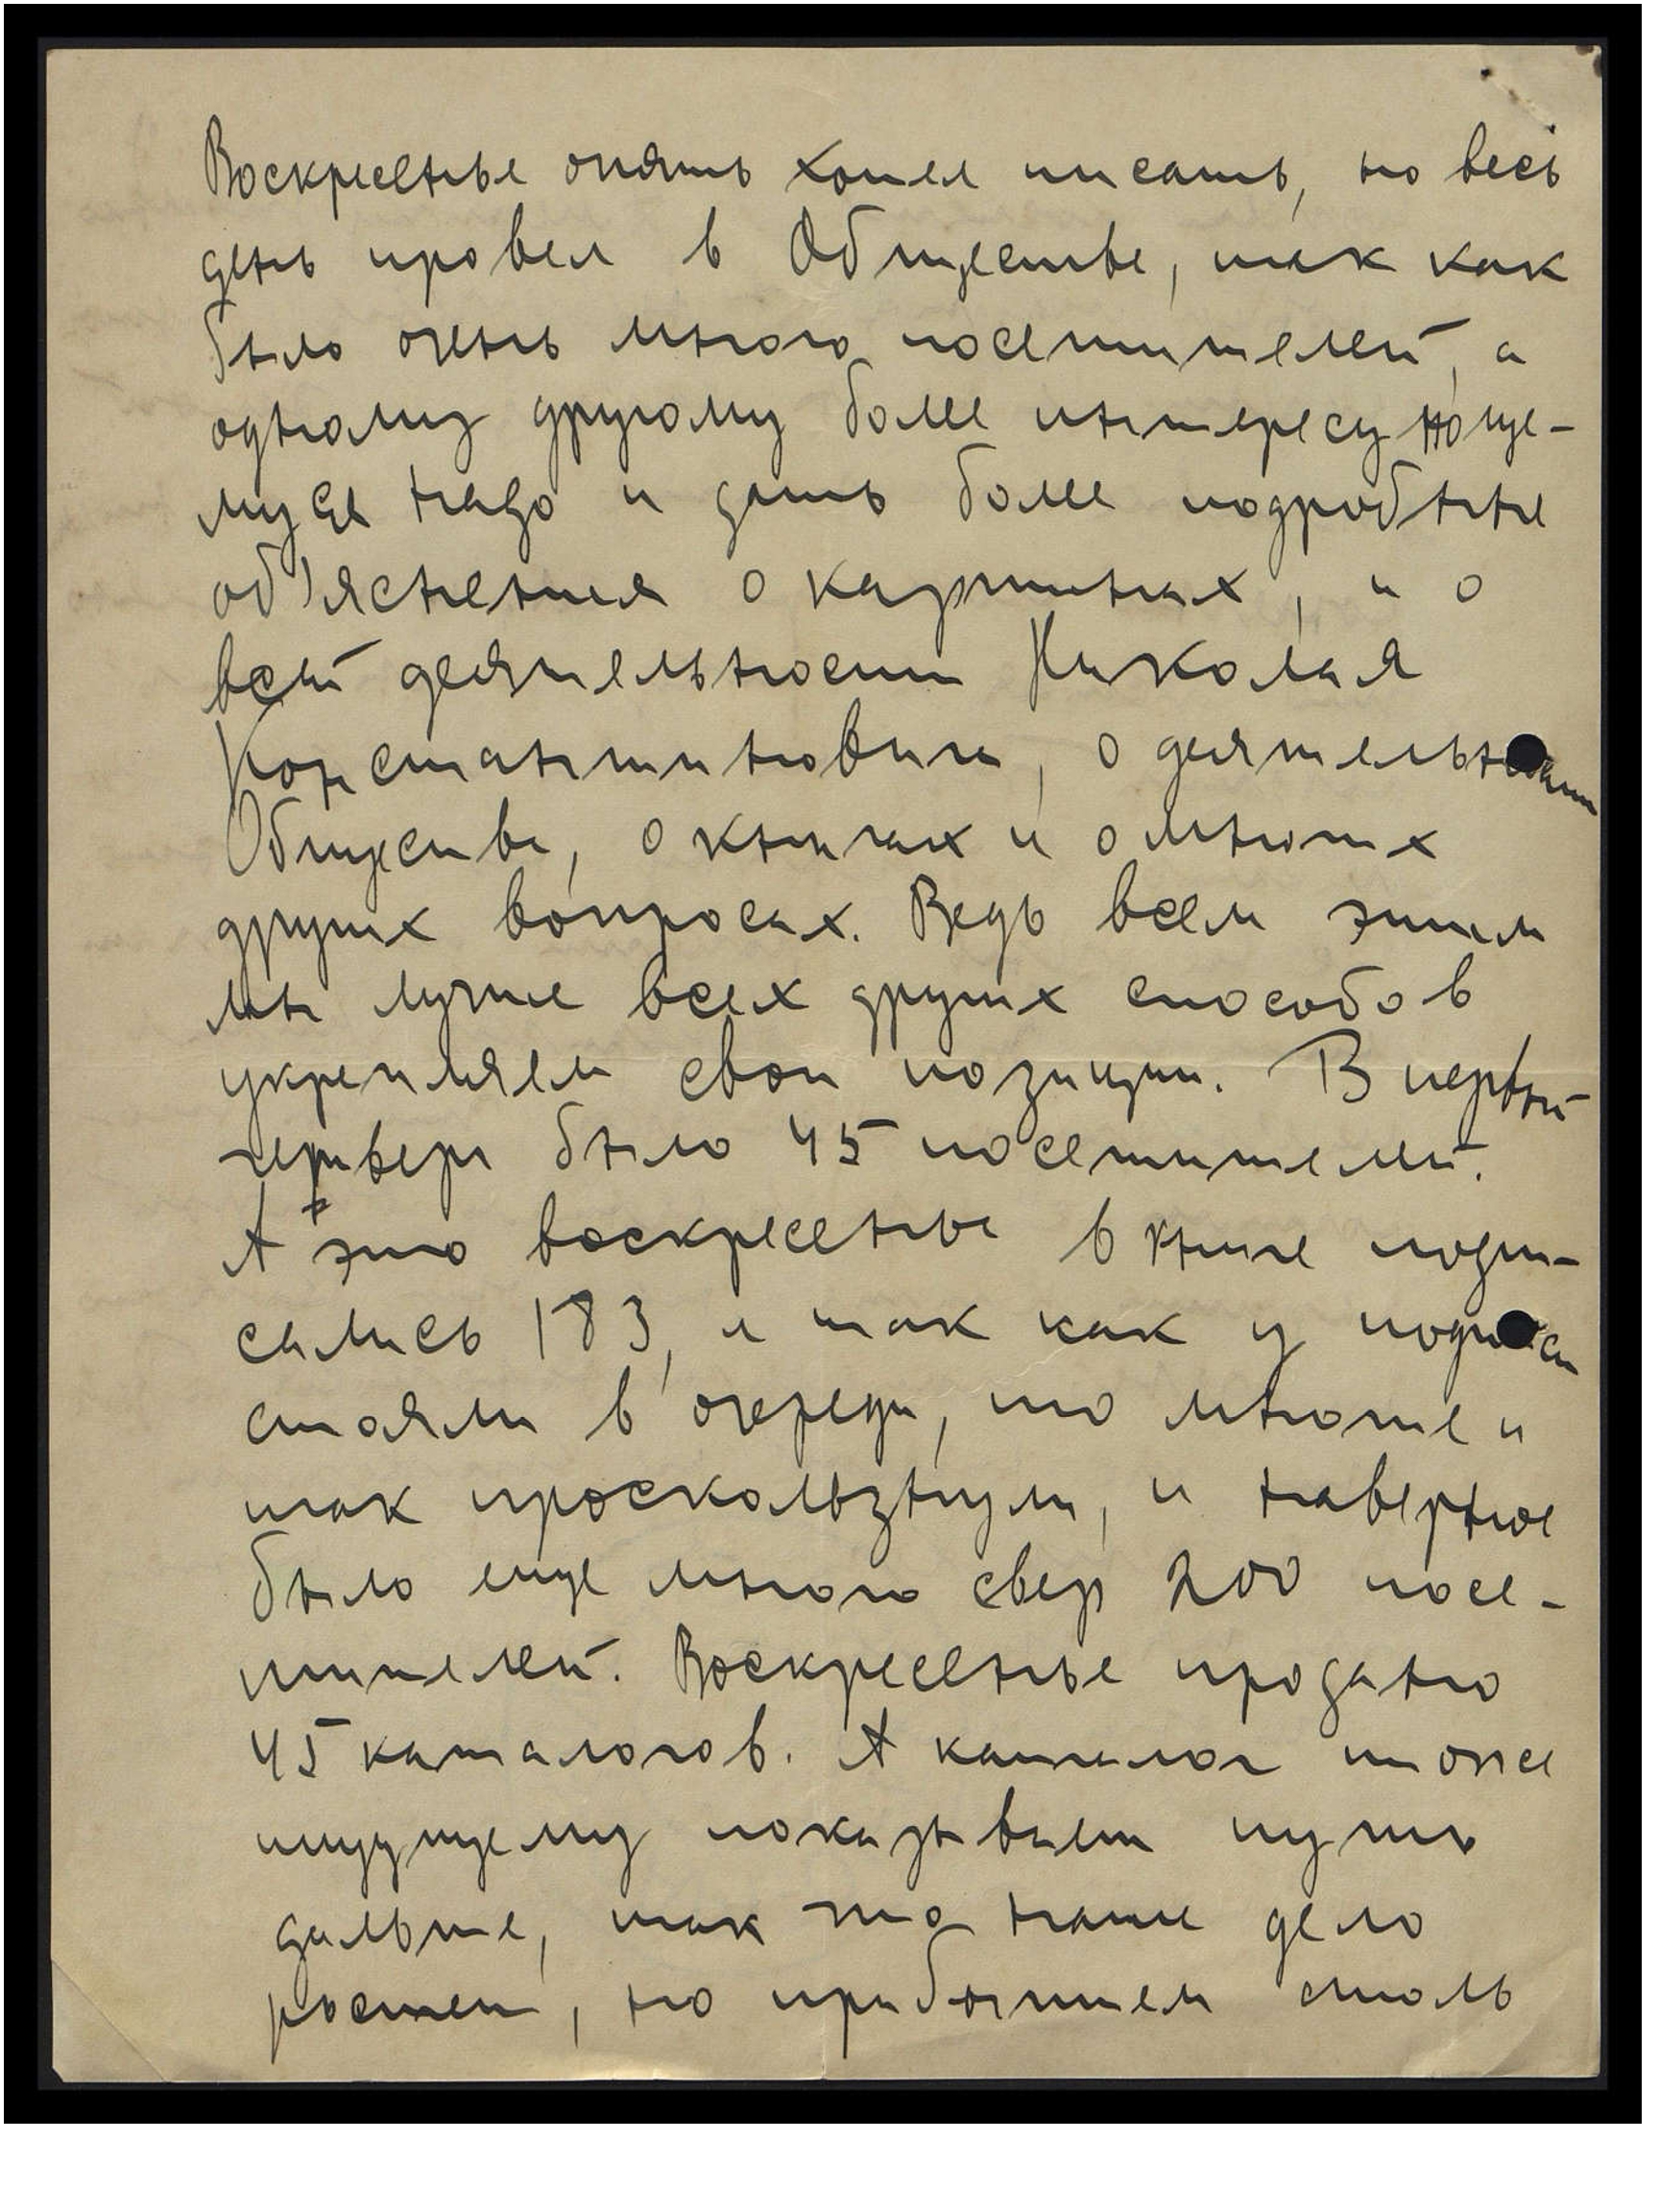 Воскресенье опять хотел писать, но весь
день провел в Обществе, так как
было очень много посетителей, а
одному другому более интересующе-
муся надо и дать более подробные
об'яснения о картинах, и о
всей деятельности Николая
Константиновича, о деятельности
Общества, о книгах и о многих
других вопросах. Ведь всем этим
мы лучше всех других способов
укрепляем свои позиции. В первый
четверг было 45 посетителей.
А в это воскресенье в книге подпи-
сались 183, и так как у подписи
стояли в очереди, то многие и
так проскользнули, и наверное
было еще много сверх 200 посе-
тителей. Воскресенье продано
45 каталогов. А каталог тоже
ищущему показывает путь
дальше, так что наше дело
растет, но прибытием столь